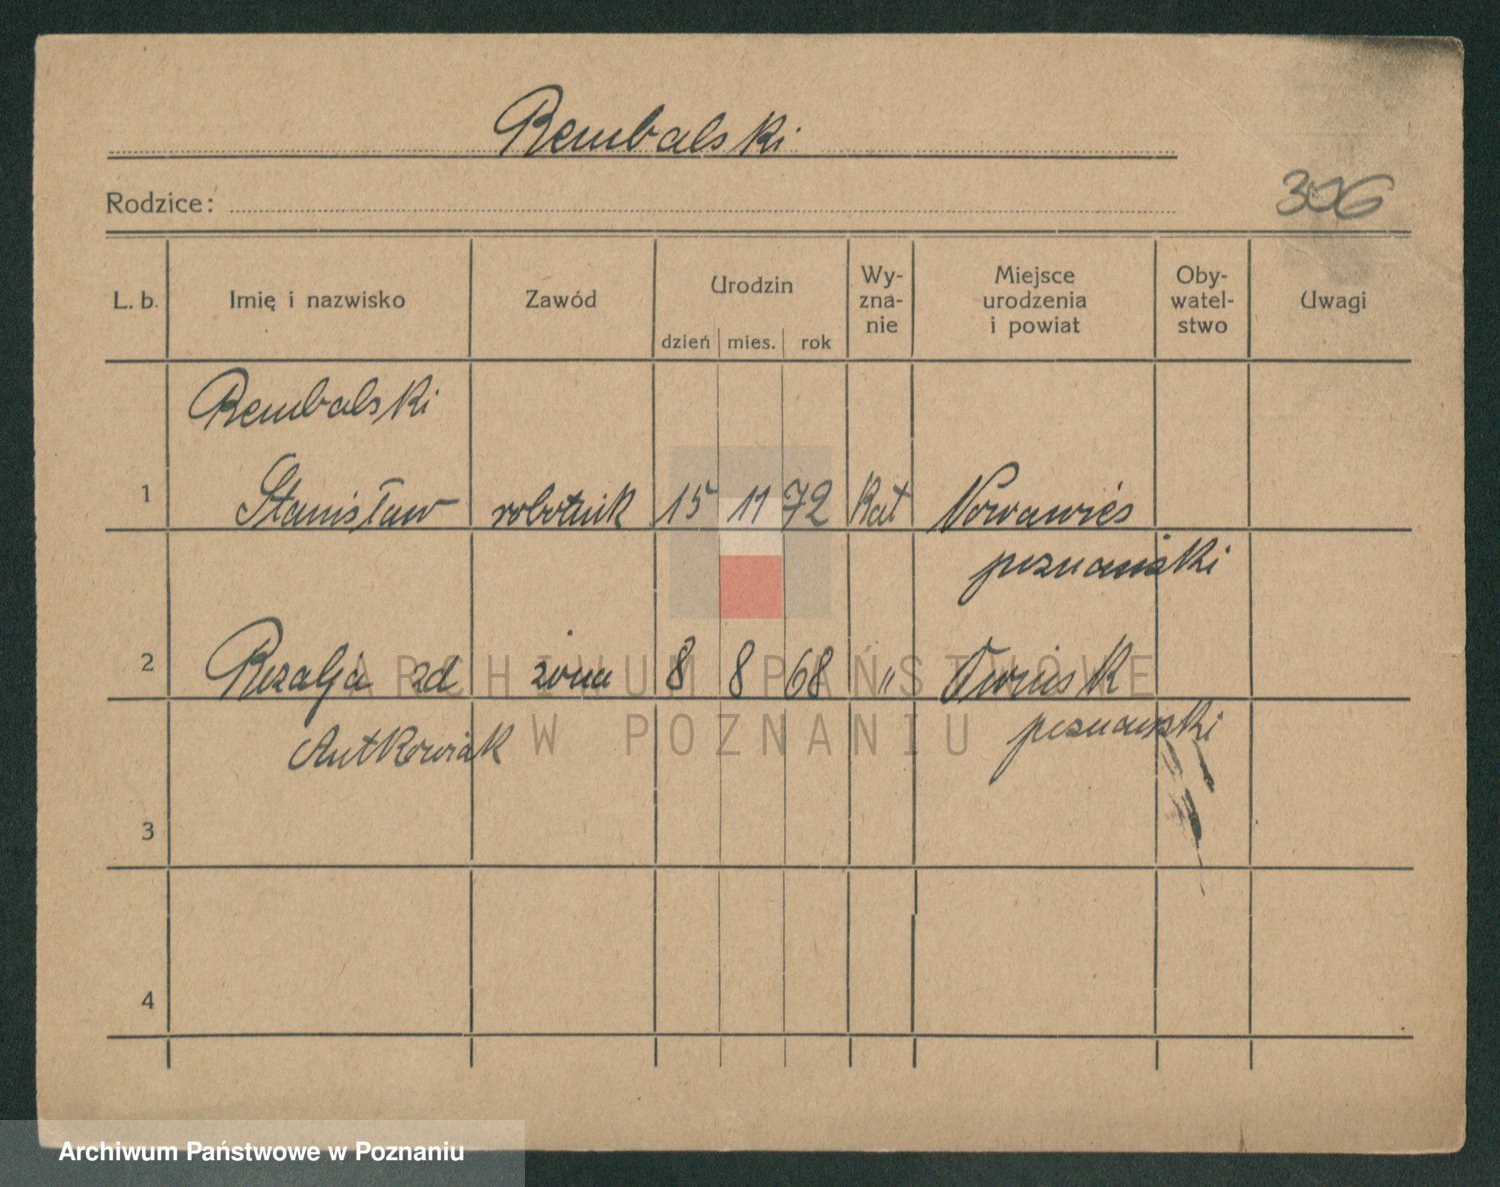 Rembalski
Rodzice:
306
L. b.
Imię i nazwisko
Zawód
Urodzin
dzień mies. rok
Wy-
zna-
nie
Miejsce
urodzenia
i powiat
Oby-
watel-
stwo
Uwagi
Rembalski
1 Stanisław robotnik 15 11 72 Kat Nowawieś
poznański
2 Rozalja zd żona 8 8 68 "
Antkowiak poznański
3
4
ARCHIWUM PAŃSTWOWE
W POZNANIU
Archiwum Państwowe w Poznaniu